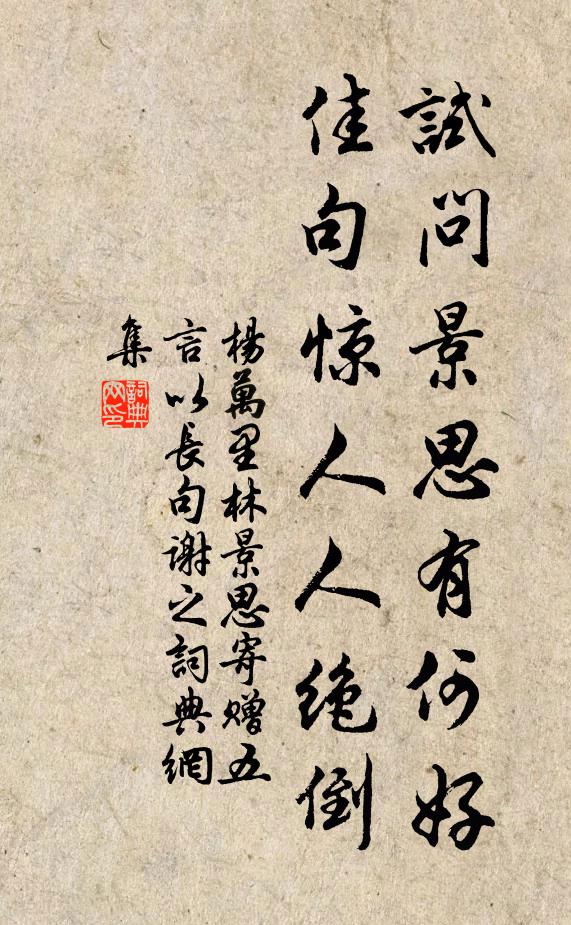 試問景思有何好
佳句惊人人绝倒
楊萬里林景思寄贈五
言以長句謝之詞典網
集
詞典
网印